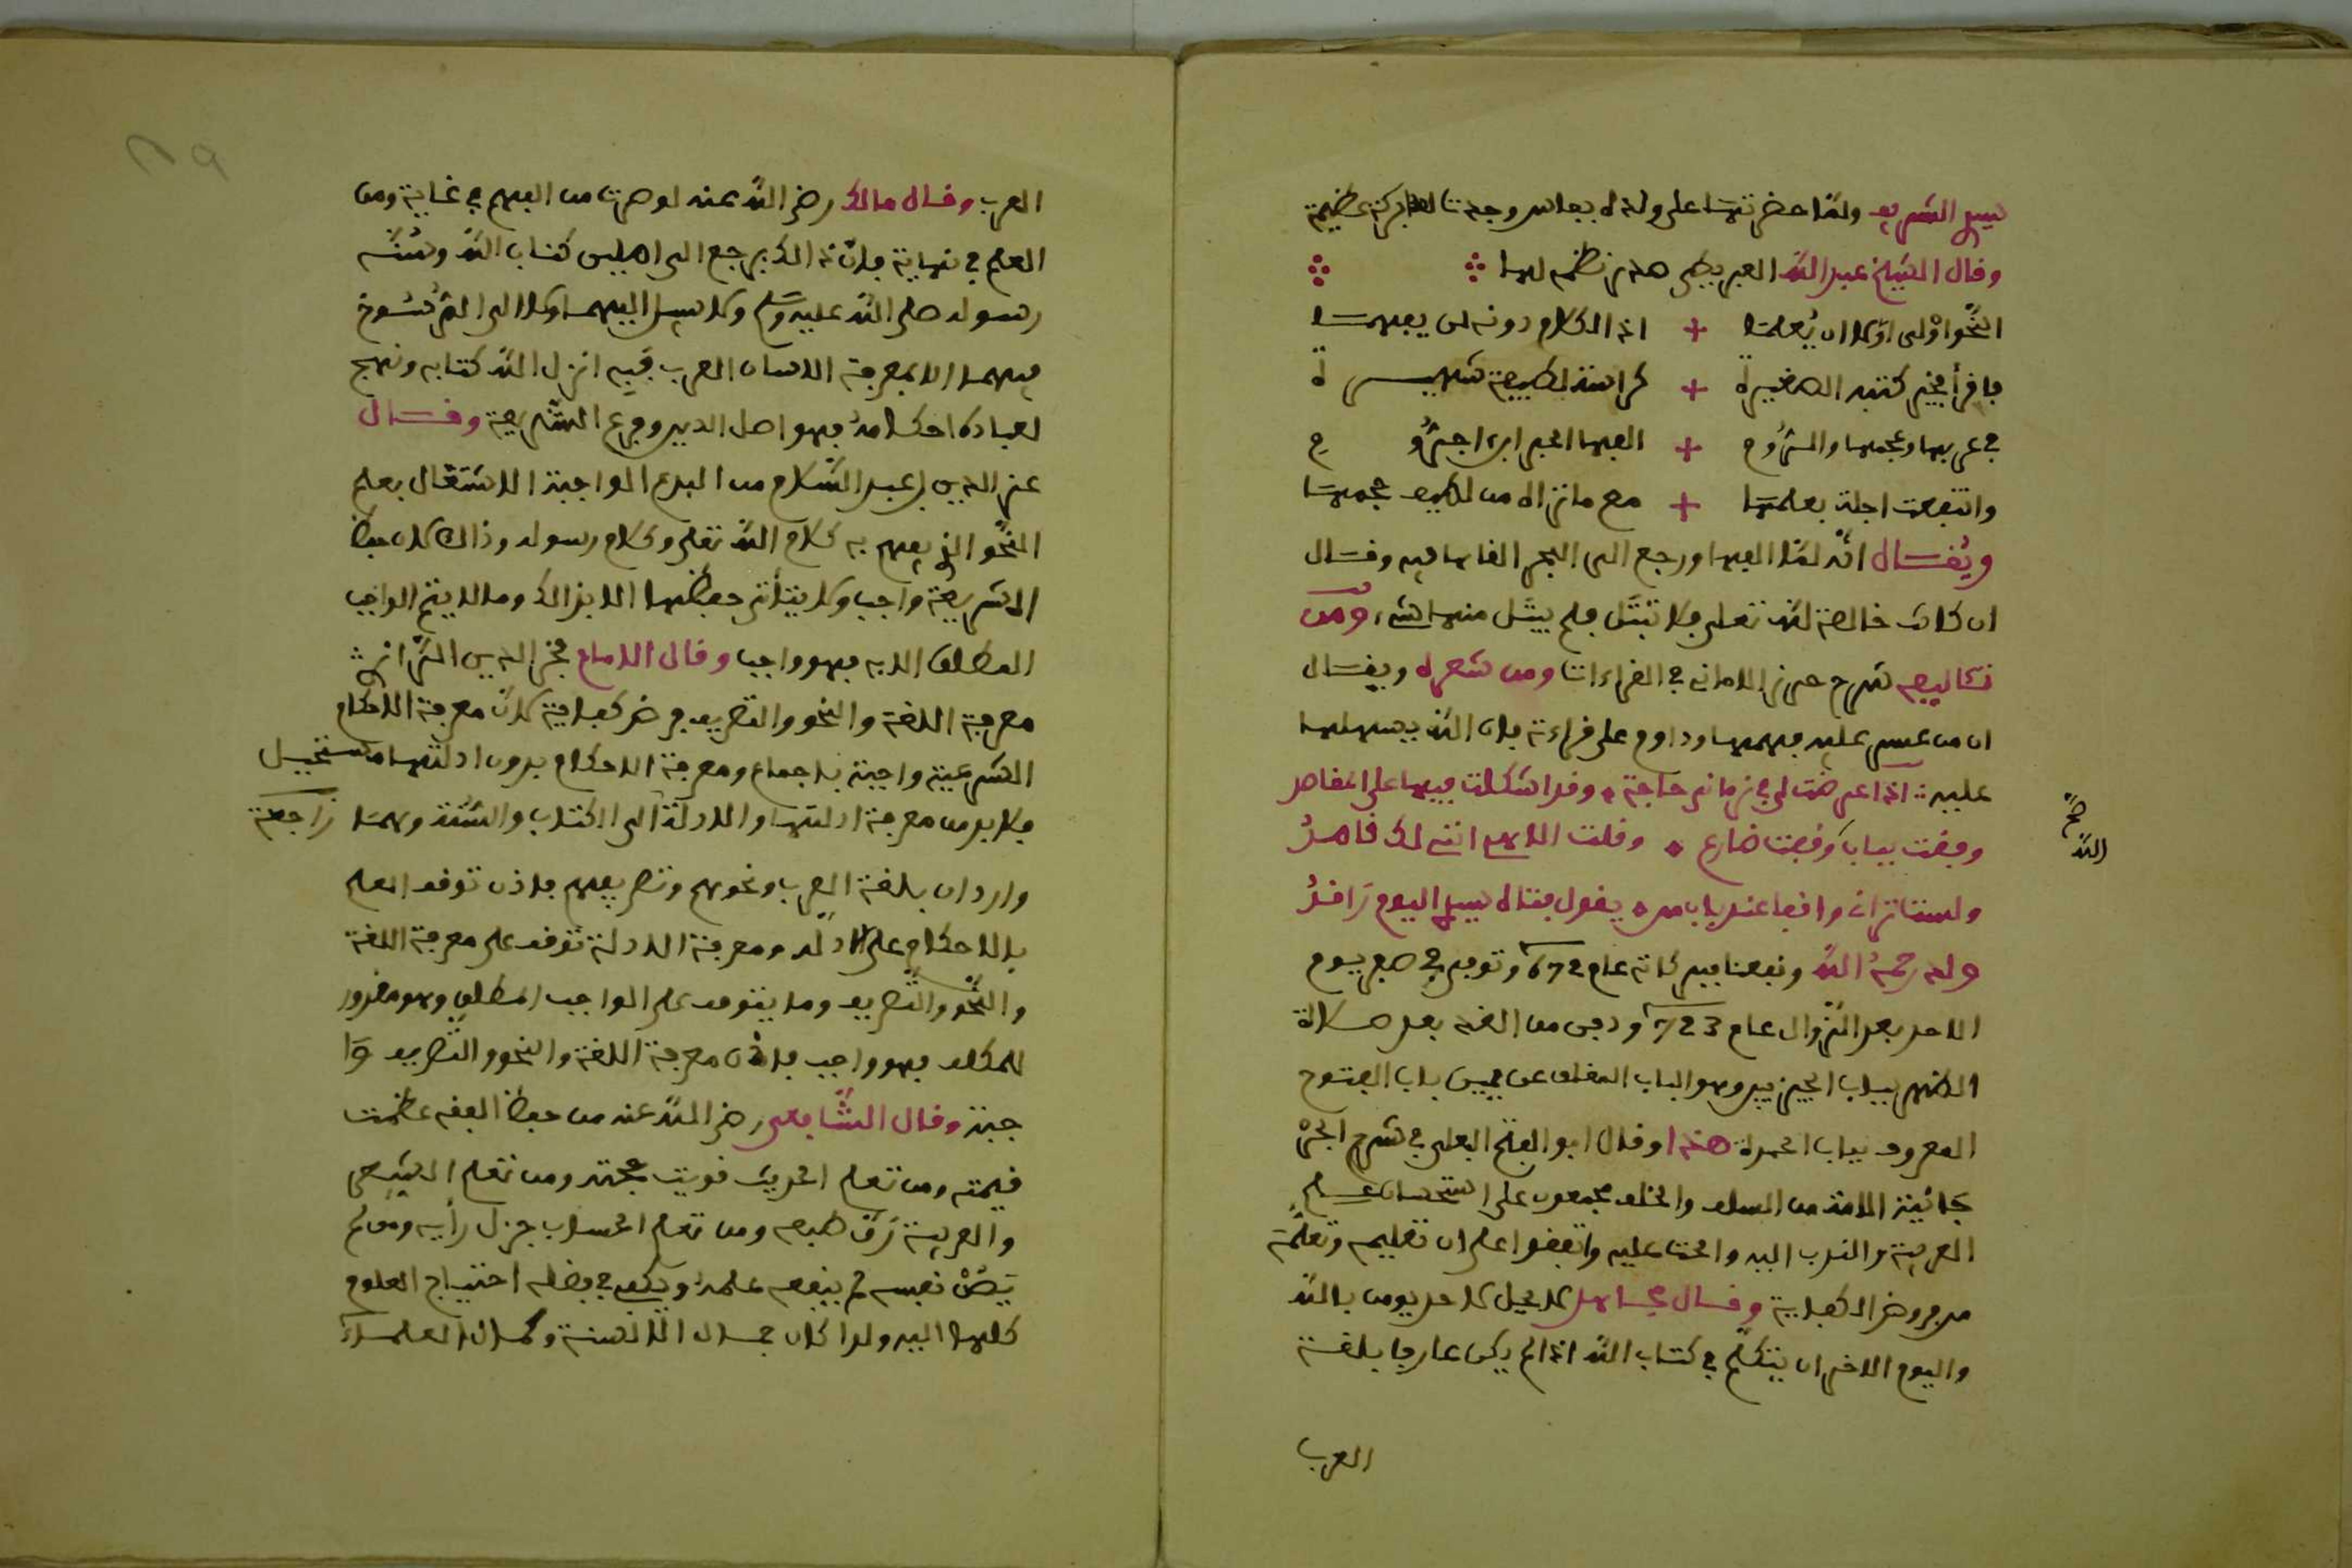 البيت الشريف ولما حضرتها على ولده بفاس وجدت لها بركة عظيمة
وقال الشيخ عبد الله العمريطي في نظمه لها
النحو أولى أولا ان يعلما + اذ الكلام دونه لن يفهما
كراسة لطيفة شهيرة
في عربها وعجمها والروم + الفها الحبر ابن اجروم
وانتفعت اجلة بعلمها + مع ما تراه من لطيف حجمها
ويقال انه لما الفها ورجع الى البحر القاها فيه وقال
ان كانت خالصة لله تعلى فلا تبتل فلم يبتل منها شيء ومن
تئاليفه شرح حرز الاماني في القراءات ومن شعره ويقال
ان من عسر عليه فهمها وداوم على قراءته فان الله يسهلها
عليه اذا عرضت لي في زماني حاجة وقد اشكلت فيها علي المقاصد
وقفت بباب وقفت ضارع وقلت الاهي انني لك قاصد
ولست تراني واقفا عند باب من يقول فتاه سيدي اليوم راقد
ولد رحمه الله ونفعنا به عام 672 وتوفي في صفر يوم
الاحد بعد الزوال عام 723 ودفن من الغد بعد صلاة
الظهر بباب الجيزيين وهو الباب المغلق عن يمين باب الفتوح
المعروف بباب الحمراء هذا وقال ابو الفتح البعلي في شرح الجر
جانية الامة من السلف والخلف مجمعون على استحسان علم
العربية والندب اليه والحث عليه واتفقوا على ان تعليمه وتعلمه
من فروض الكفاية وقال مجاهد لا يحل لاحد يومن بالله
واليوم الاخر ان يتكلم في كتاب الله اذا لم يكن عارفا بلغة
العرب
صح
الله
العرب وقال مالك رضي الله عنه لو صرت من الفهم في غاية ومن
العلم في نهاية فان ذلك يرجع الى اصلين كتاب الله وسنة
رسوله صلى الله عليه وسلم ولا سبيل اليهما ولا الى الرسوخ
فيهما الا بمعرفة اللسان العرب فبه انزل الله كتابه ونهج
لعباده احكامه فهو اصل الدين وفرع الشريعة وقال
عز الدين بن عبد السلام من البدع الواجبة الاشتغال بعلم
النحو الذي يفهم به كلام الله تعلى وكلام رسوله وذالك لان حفظ
الشريعة واجب ولا يتأتى حفظها الا بذالك وما لا يتم الواجب
المطلق الا به فهو واجب وقال الامام فخر الدين الرازي
معرفة اللغة والنحو والتصريف فرض كفاية لان معرفة الاحكام
الشرعية واجبة باجماع ومعرفة الاحكام بدون ادلتها مستحيل
فلا بد من معرفة ادلتها والادلة الى الكتاب والسنة وهما راجعة
واردان بلغة العرب ونحوهم وتصريفهم فاذن توقف العلم
بالاحكام على الادلة ومعرفة الادلة تتوقف على معرفة اللغة
والنحو والتصريف وما يتوقف على الواجب المطلق وهو مقدور
للمكلف فهو واجب فاذن معرفة اللغة والنحو والتصريف وا
جبة وقال الشافعي رضي الله عنه من حفظ الفقه عظمت
قيمته ومن تعلم الحديث قويت حجته ومن تعلم الشعر
والعربية رق طبعه ومن تعلم الحساب جزل رأيه ومن لم
يصن نفسه لم ينفعه علمه ويكفي في فضله احتياج العلوم
كلها اليه ولذا كان جمال الالسنة وكمال العلماء